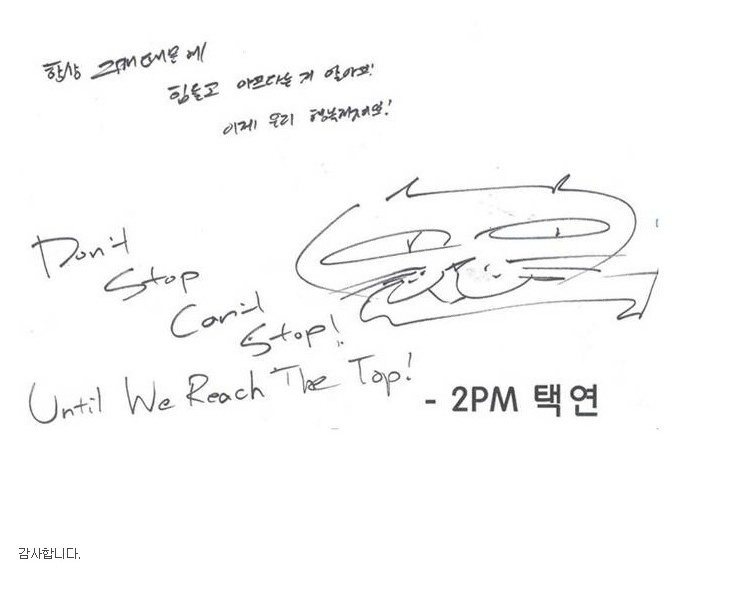 항상 그대때문에
힘들고 아프다는거 알아요!
이제 우리 행복해져요!
Don't
Stop
Can't
Stop!!
Until We Reach The Top!
- 2PM 택연
감사합니다.